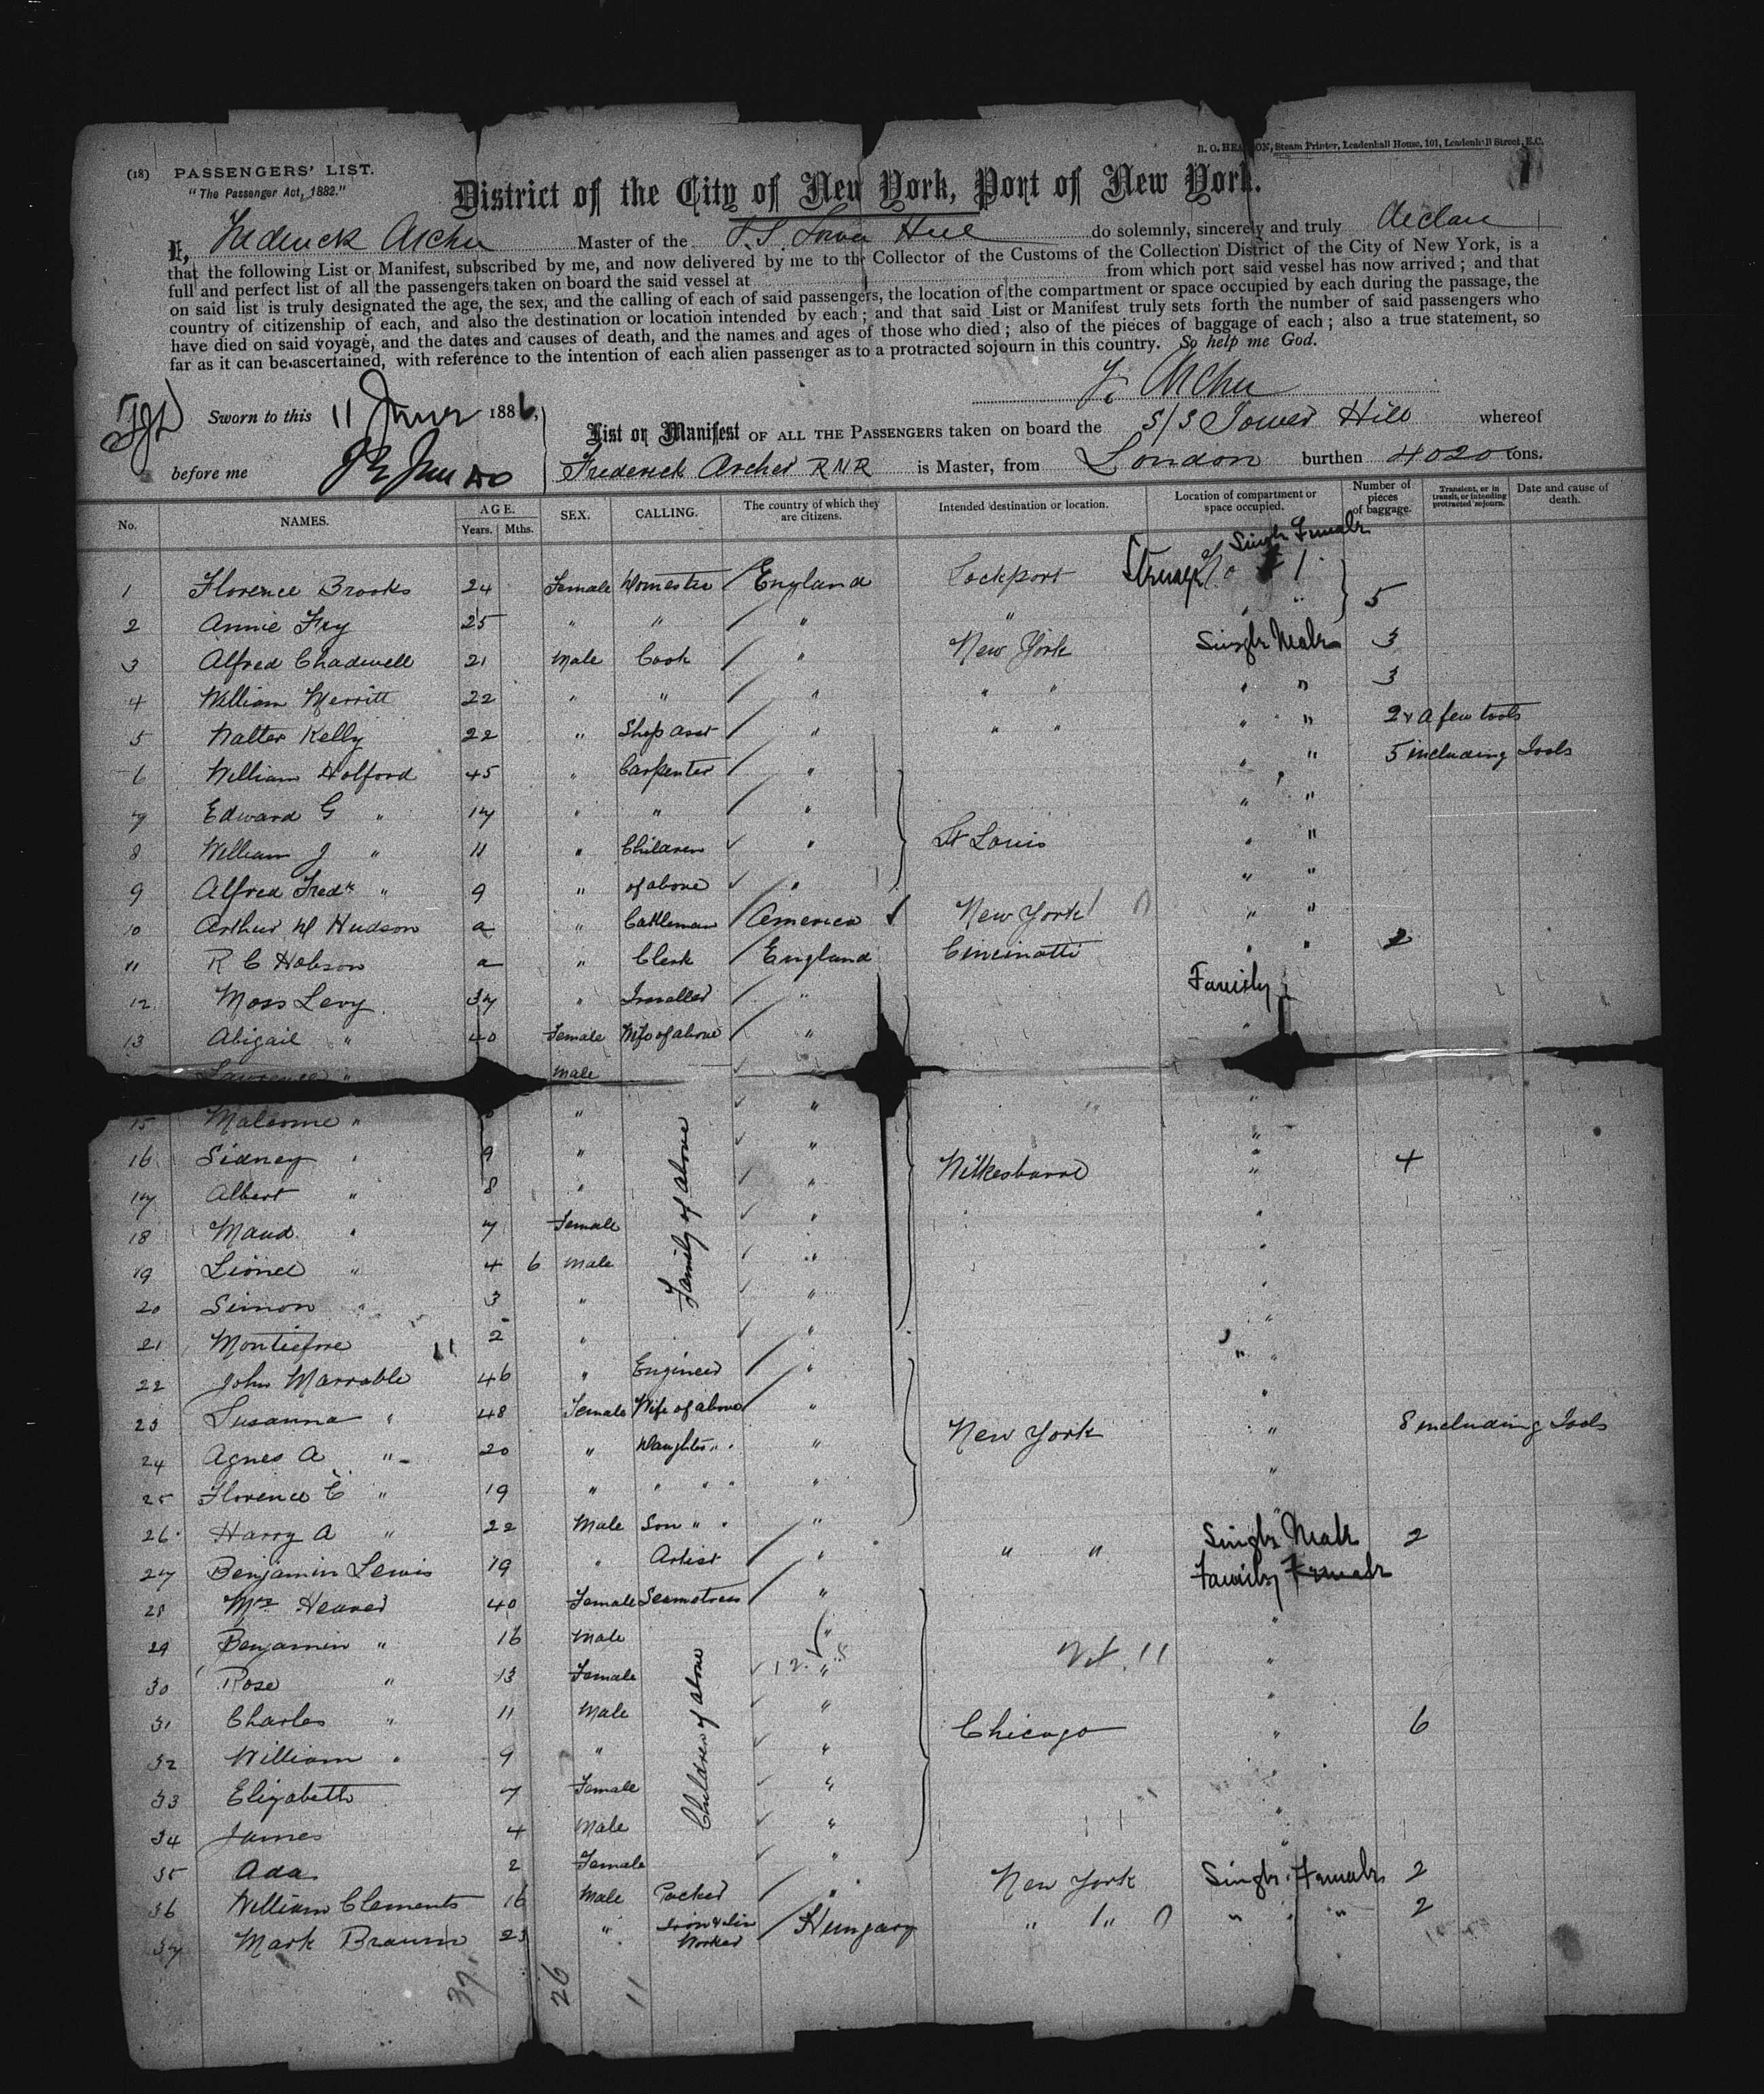 B. O. HEA ON, Steam Printer, Leadenhall House, 101, Leadenhall Street, E.C.
(18) PASSENGERS' LIST.
"The Passenger Act, 1882."
District of the City of New York, Port of New York.
I, Frederick Archer Master of the S.S. Tower Hill do solemnly, sincerely and truly declare
that the following List or Manifest, subscribed by me, and now delivered by me to the Collector of the Customs of the Collection District of the City of New York, is a
full and perfect list of all the passengers taken on board the said vessel at from which port said vessel has now arrived; and that
on said list is truly designated the age, the sex, and the calling of each of said passengers, the location of the compartment or space occupied by each during the passage, the
country of citizenship of each, and also the destination or location intended by each; and that said List or Manifest truly sets forth the number of said passengers who
have died on said voyage, and the dates and causes of death, and the names and ages of those who died; also of the pieces of baggage of each; also a true statement, so
far as it can be ascertained, with reference to the intention of each alien passenger as to a protracted sojourn in this country. So help me God.
F. Archer
Sworn to this 11 June 1886,
List or Manifest OF ALL THE PASSENGERS taken on board the S/S Tower Hill whereof
before me
Frederick Archer RNR is Master, from London burthen 4020 tons.
No. NAMES. AGE. Years. Mths. SEX. CALLING. The country of which they are citizens. Intended destination or location. Location of compartment or space occupied. Number of pieces of baggage. Transient, or in transit, or intending protracted sojourn. Date and cause of death.
Single Female
1 Florence Brooks 24 Female Domestic England Lockport Steerage No 1
2 Annie Fry 25 " " " " " 5
3 Alfred Chadwell 21 Male Cook " New York Single Male 3
4 William Merritt 22 " " " " " " " 3
5 Walter Kelly 22 " Shop asst " " " " " 2 & a few tools
6 William Holford 45 " Carpenter " " " 5 including Tools
7 Edward G " 17 " " " " "
8 William J " 11 " Children " St Louis " "
9 Alfred Fredk " 9 " of above " " "
10 Arthur W Hudson a " Cattleman America New York " "
11 R C Hobson a " Clerk England Cincinatti " " 2
12 Moss Levy 37 " " Family
13 Abigail " 40 Female Wife of above " "
Lawrence " Male
15 Malcome " " " "
16 Sidney " 9 " " Wilkesbarre " 4
17 Albert " 8 " "
18 Maud " 7 Female Family of above " "
19 Lionel " 4 6 Male " "
20 Simon " 3 " " "
21 Montiefore 2 " " "
22 John Marrable 46 " Engineer " " "
23 Susanna " 48 Female Wife of above " "
24 Agnes A " 20 " Daughter " " " New York " 8 including Tools
25 Florence E " 19 " " " " " "
26 Harry A " 22 Male Son " " "
27 Benjamin Lewis 19 " Artist " " " Single Male 2
28 Mrs Heaver 40 Female Seamstress " Family Female
29 Benjamin " 16 Male " "
30 Rose " 13 Female " "
31 Charles " 11 Male Children of above " "
32 William " 9 " " Chicago " 6
33 Elizabeth 7 Female " "
34 James 4 Male " "
35 Ada 2 Female " "
36 William Clements 16 Male Packer " New York Single Female 2
37 Mark Braum 23 " Iron & Tin Worker Hungary " " " " 2
37. 26 11